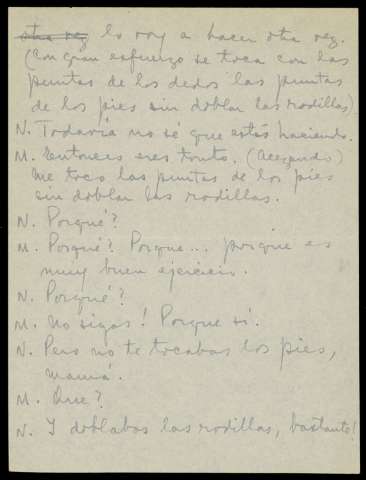 otra vez lo voy a hacer otra vez.
(Con gran esfuerzo se toca con las
puntas de los dedos las puntas
de los pies sin doblar las rodillas)
N. Todavía no sé que estás haciendo.
M. Entonces eres tonto. (
Me toco las puntas de los pies
sin doblar las rodillas.
N. Porqué?
M. Porqué? Porque... porque es
muy buen ejercicio.
N. Porqué?
M. No sigas! Porque sí.
N. Pero no te tocabas los pies,
mamá.
M. Que?
N. Y doblabas las rodillas, bastante!